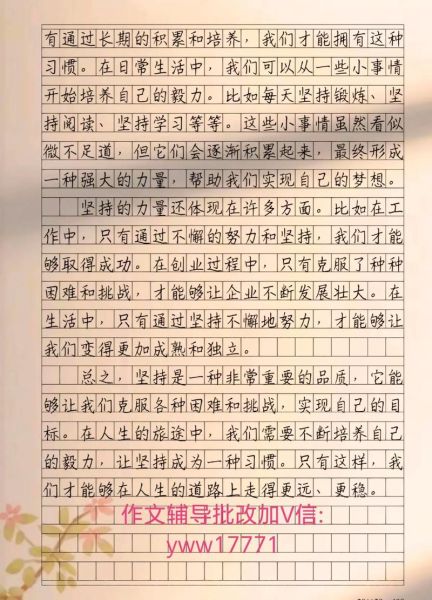 有通过长期的积累和培养，我们才能拥有这种
习惯。在日常生活中，我们可以从一些小事情
开始培养自己的毅力。比如每天坚持锻炼、坚
持阅读、坚持学习等等。这些小事情虽然看似
微不足道，但它们会逐渐积累起来，最终形成
一种强大的力量，帮助我们实现自己的梦想。
坚持的力量还体现在许多方面。比如在工
作中，只有通过不懈的努力和坚持，我们才能
够取得成功。在创业过程中，只有克服了种种
困难和挑战，才能够让企业不断发展壮大。在
生活中，只有通过坚持不懈地努力，才能够让
我们变得更加成熟和独立。
总之，坚持是一种非常重要的品质，它能
够让我们克服各种困难和挑战，实现自己的目
标。在人生的旅途中，我们需要不断培养自己
的毅力，让坚持成为一种习惯。只有这样，我
们才能够在人生的道路上走得更远、更稳。
作文辅导批改加V信：
yww17771